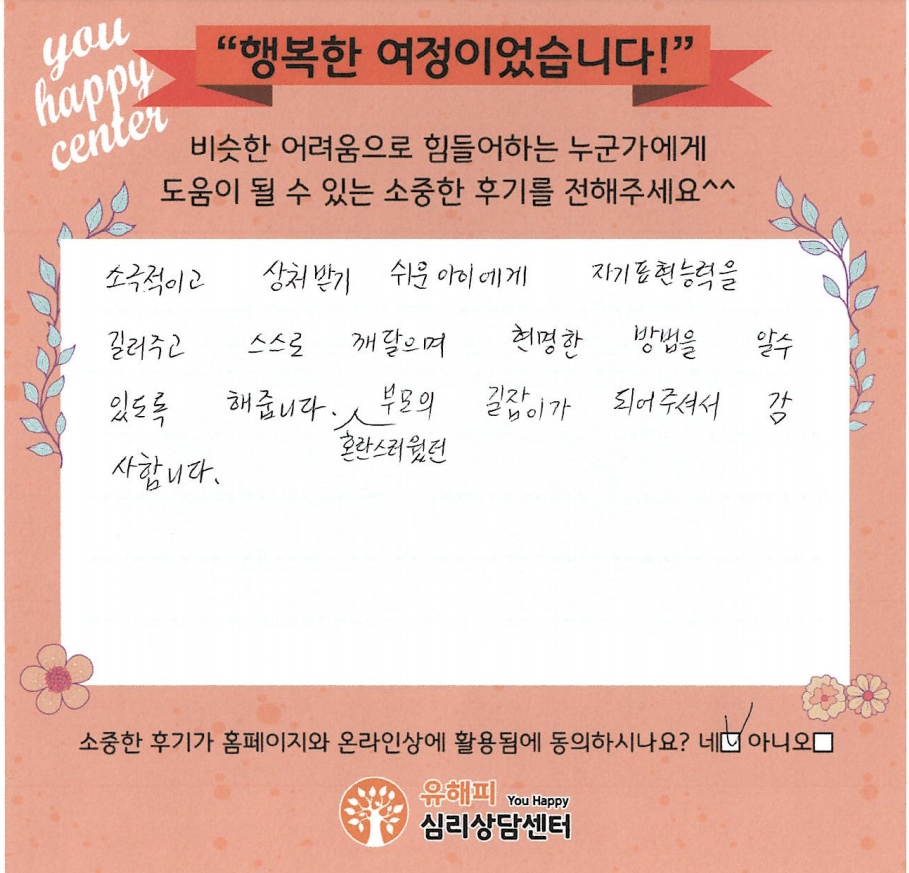 you
happy
center
“행복한 여정이었습니다!”
비슷한 어려움으로 힘들어하는 누군가에게
도움이 될 수 있는 소중한 후기를 전해주세요^^
소극적이고 상처받기 쉬운 아이에게 자기표현능력을
길러주고 스스로 깨달으며 현명한 방법을 알수
있도록 해줍니다. 부모의 길잡이가 되어주셔서 감
혼란스러웠던
사합니다.
소중한 후기가 홈페이지와 온라인상에 활용됨에 동의하시나요? 네☑ 아니오☐
유해피 You Happy
심리상담센터